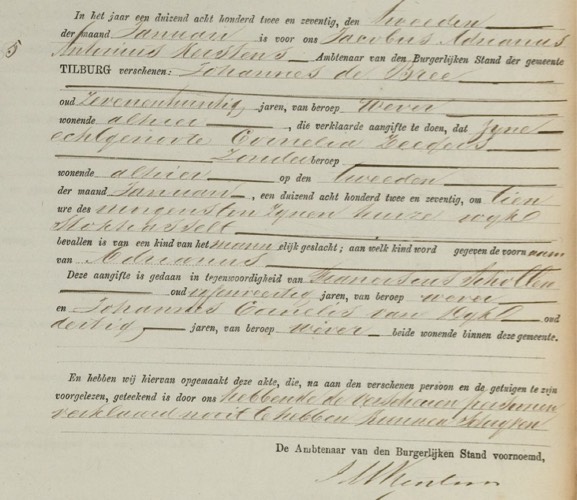 In het jaar een duizend acht honderd twee en zeventig, den tweeden
der maand Januari is voor ons Jacobus Adrianus
5
Antonius Kerstens Ambtenaar van den Burgerlijken Stand der gemeente
TILBURG verschenen: Johannes de Bree
oud zevenentwintig jaren, van beroep wever
wonende alhier, die verklaarde aangifte te doen, dat zijne
echtgenoote Cornelia
Zonder beroep
wonende alhier op den tweeden
der maand Januari, een duizend acht honderd twee en zeventig, om tien
ure des morgens ten zijnen huize wijk
bevallen is van een kind van het mannelijk geslacht; aan welk kind word gegeven de voornaam
van Adrianus
Deze aangifte is gedaan in tegenwoordigheid van Franciscus Scholten
oud jaren, van beroep wever
en Johannes Cornelis van oud
dertig, jaren, van beroep wever beide wonende binnen deze gemeente.
En hebben wij hiervan opgemaakt deze akte, die, na aan den verschenen persoon en de getuigen te zijn
voorgelezen, geteekend is door ons hebbende de verschenen personen
verklaard nooit te hebben kunnen schrijven
De Ambtenaar van den Burgerlijken Stand voornoemd,